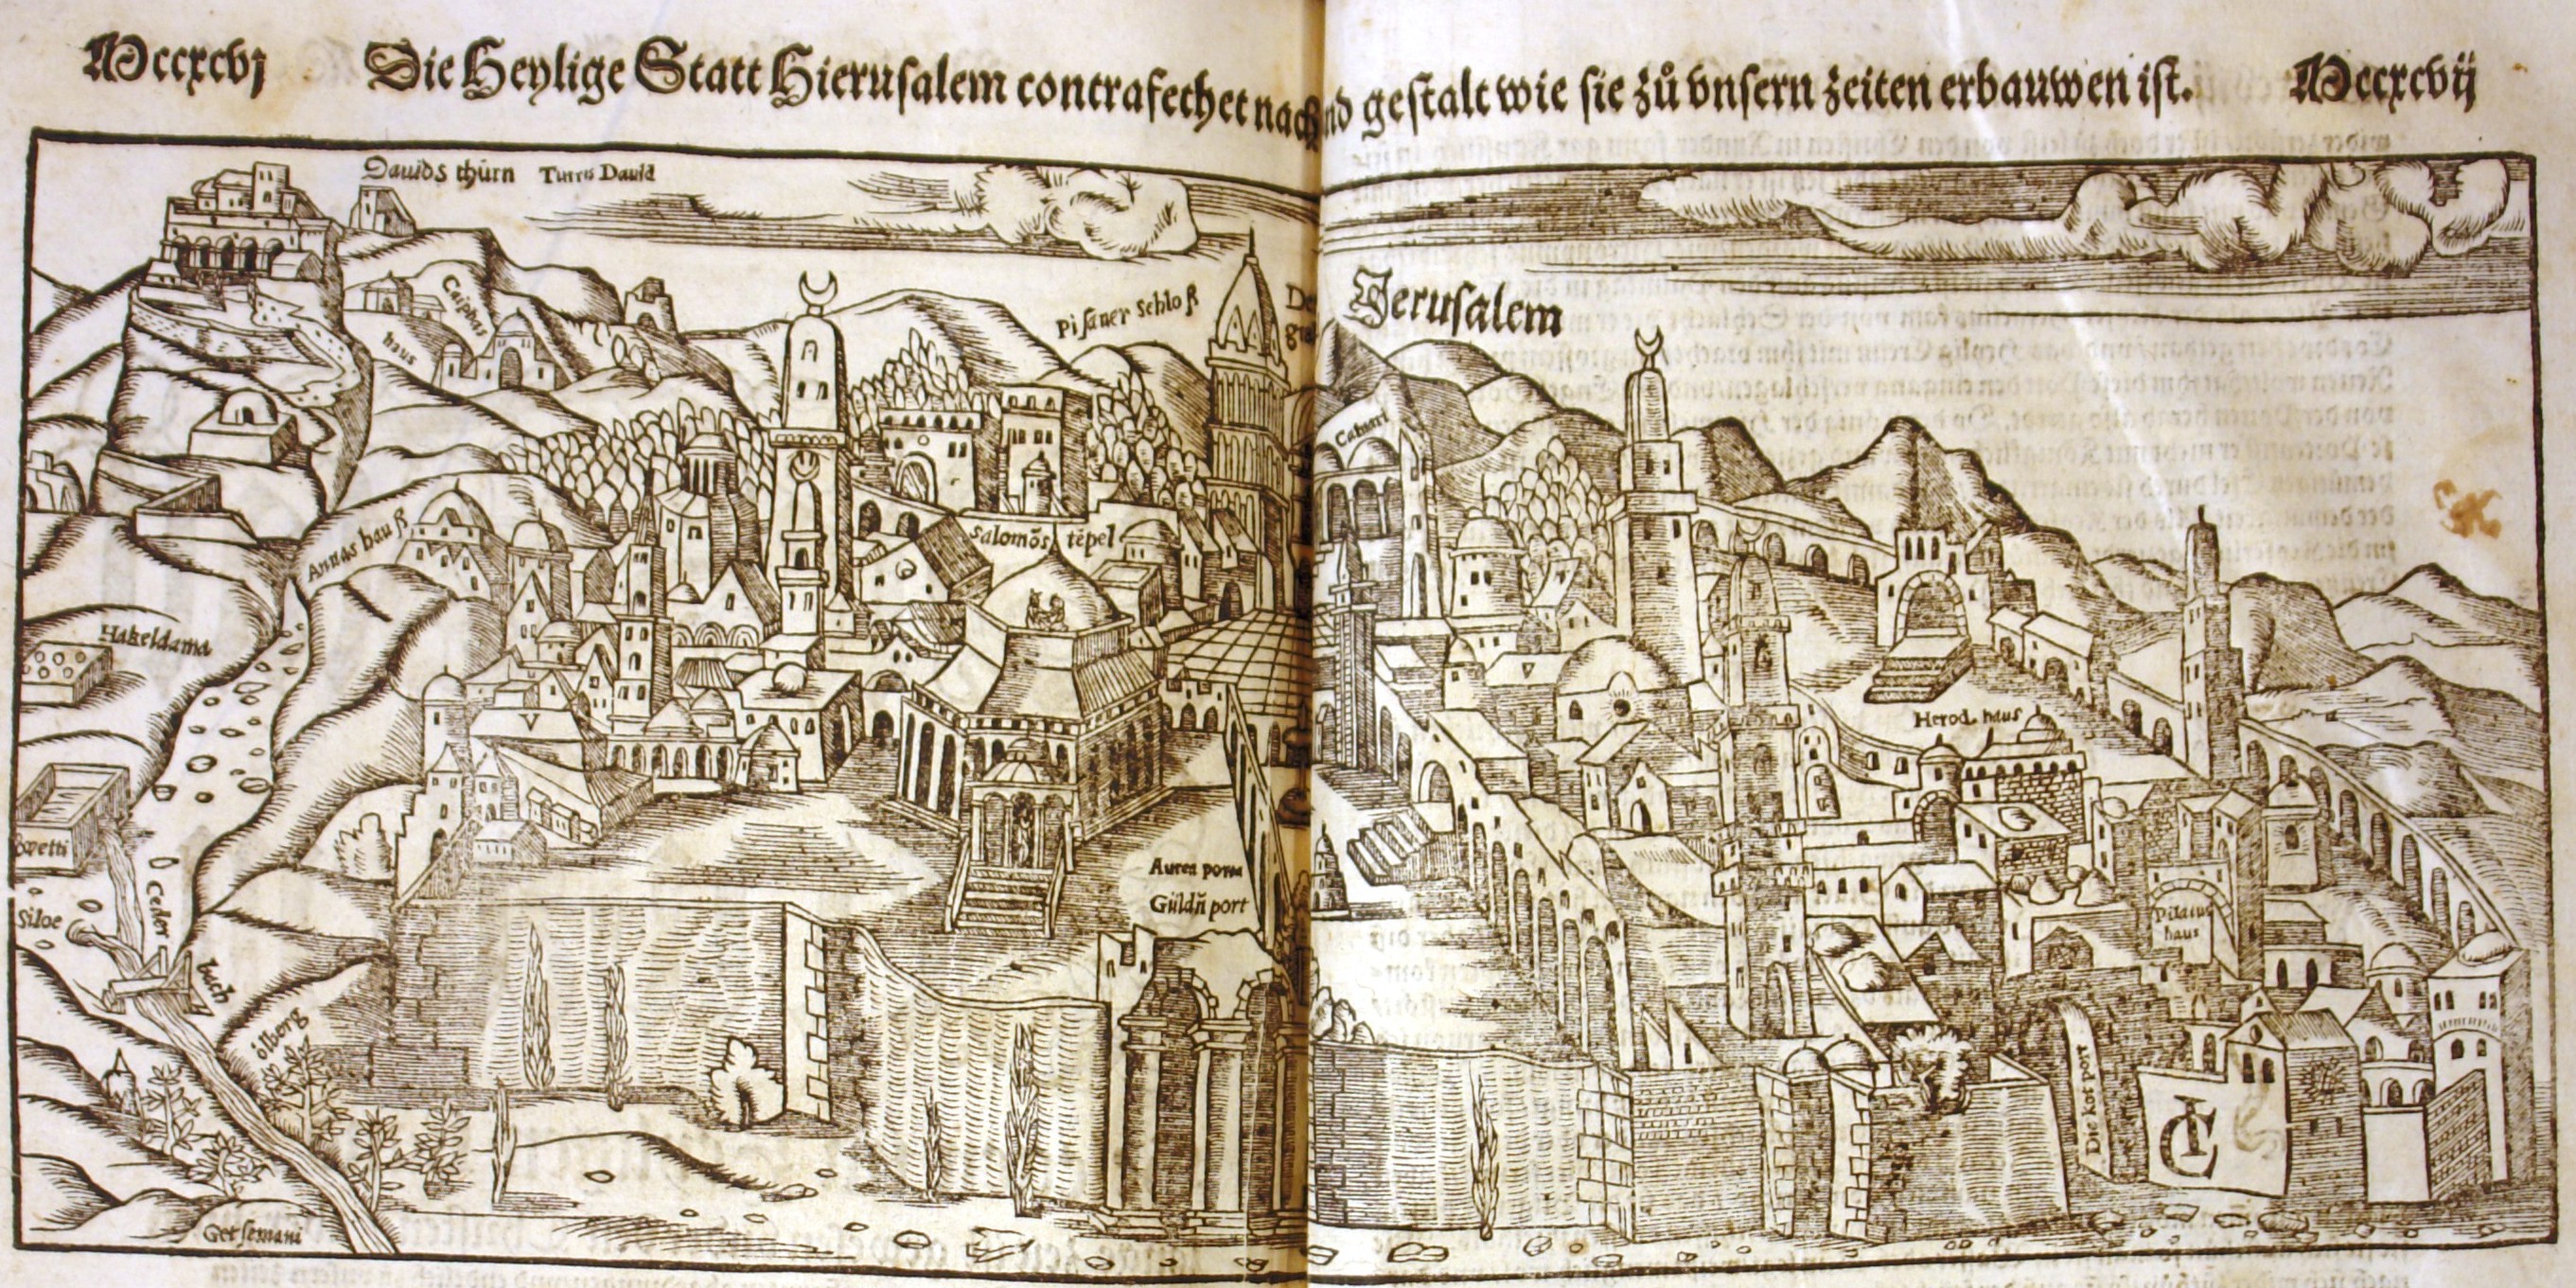 Mccxcvj Die Heylige Statt Hierusalem contrafethet nach gestalt wie sie zů vnsern zeiten erbauwen ist. Mccxcvij
Dauids thurn Turris Dauid
Caiphas
haus
Pisaner Schloß
Jerusalem
Caluari
Annas hauß
Salomōs tēpel
Hakeldama
Herod. haus
Aurea porta
Güldñ port
Siloe
Cedor
bach
Pilatus
haus
ölberg
Die kot port
Getsemani